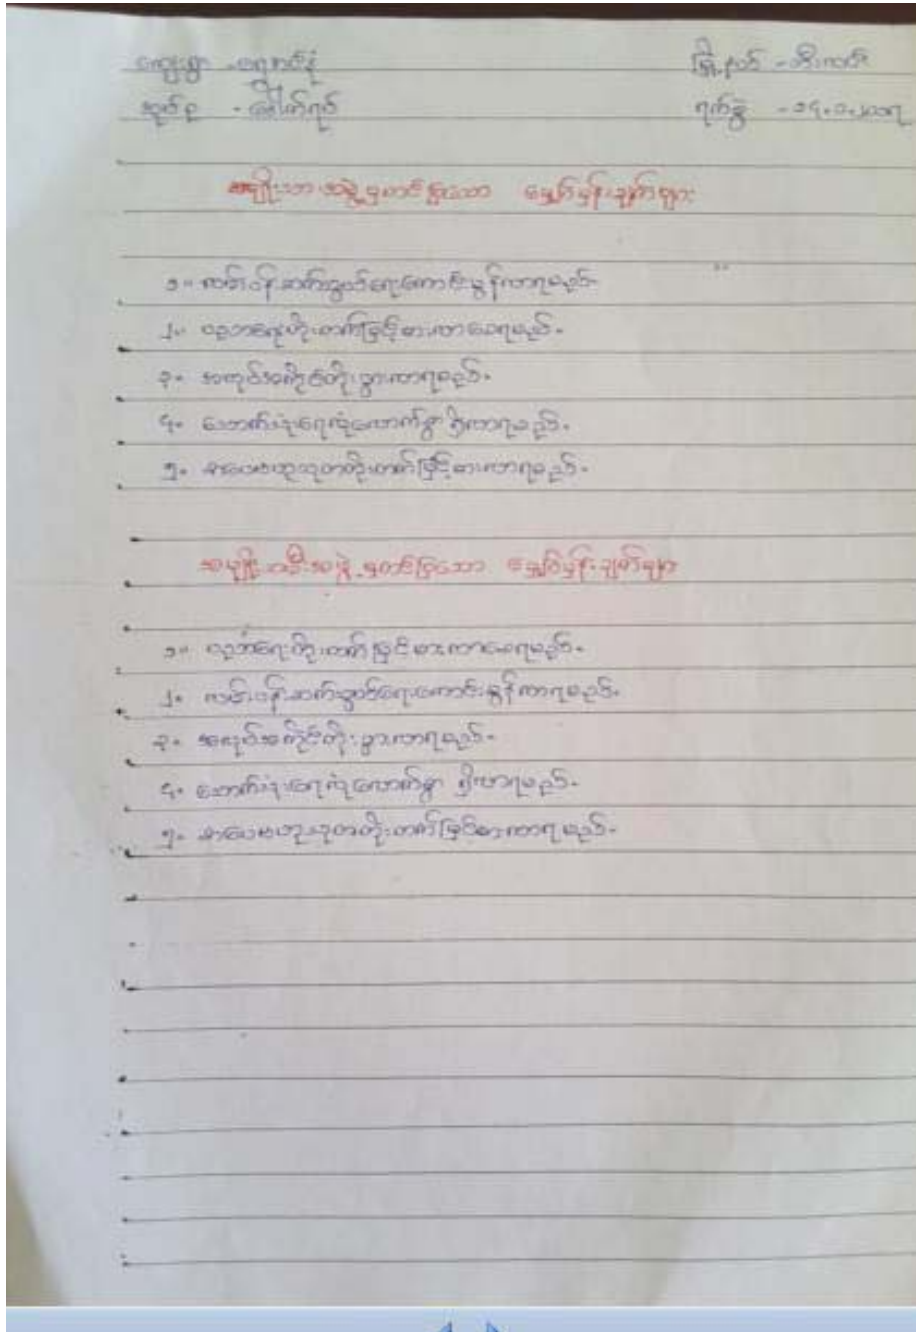 ကျေးရွာ - ရေ မြို့နယ် - ဘီးလင်း
အုပ်စု - ရက်စွဲ -
အမျိုးသားအဖွဲ့မှတင်ပြသော မျှော်မှန်းချက်များ
၁။ လမ်းပန်းဆက်သွယ်ရေးကောင်းမွန်လာရမည်။
၂။ ပညာရေးတိုးတက်မြင့်မားလာစေရမည်။
၃။ အလုပ်အကိုင်တိုးပွားလာရမည်။
၄။ သောက်သုံးရေလုံလောက်စွာ ရှိလာရမည်။
၅။ ဗဟုသုတတိုးတက်မြင့်မားလာရမည်။
အမျိုးသမီးအဖွဲ့မှတင်ပြသော မျှော်မှန်းချက်များ
၁။ ပညာရေးတိုးတက်မြင့်မားလာစေရမည်။
၂။ လမ်းပန်းဆက်သွယ်ရေးကောင်းမွန်လာရမည်။
၃။ အလုပ်အကိုင်တိုးပွားလာရမည်။
၄။ သောက်သုံးရေလုံလောက်စွာ ရှိလာရမည်။
၅။ ဗဟုသုတတိုးတက်မြင့်မားလာရမည်။